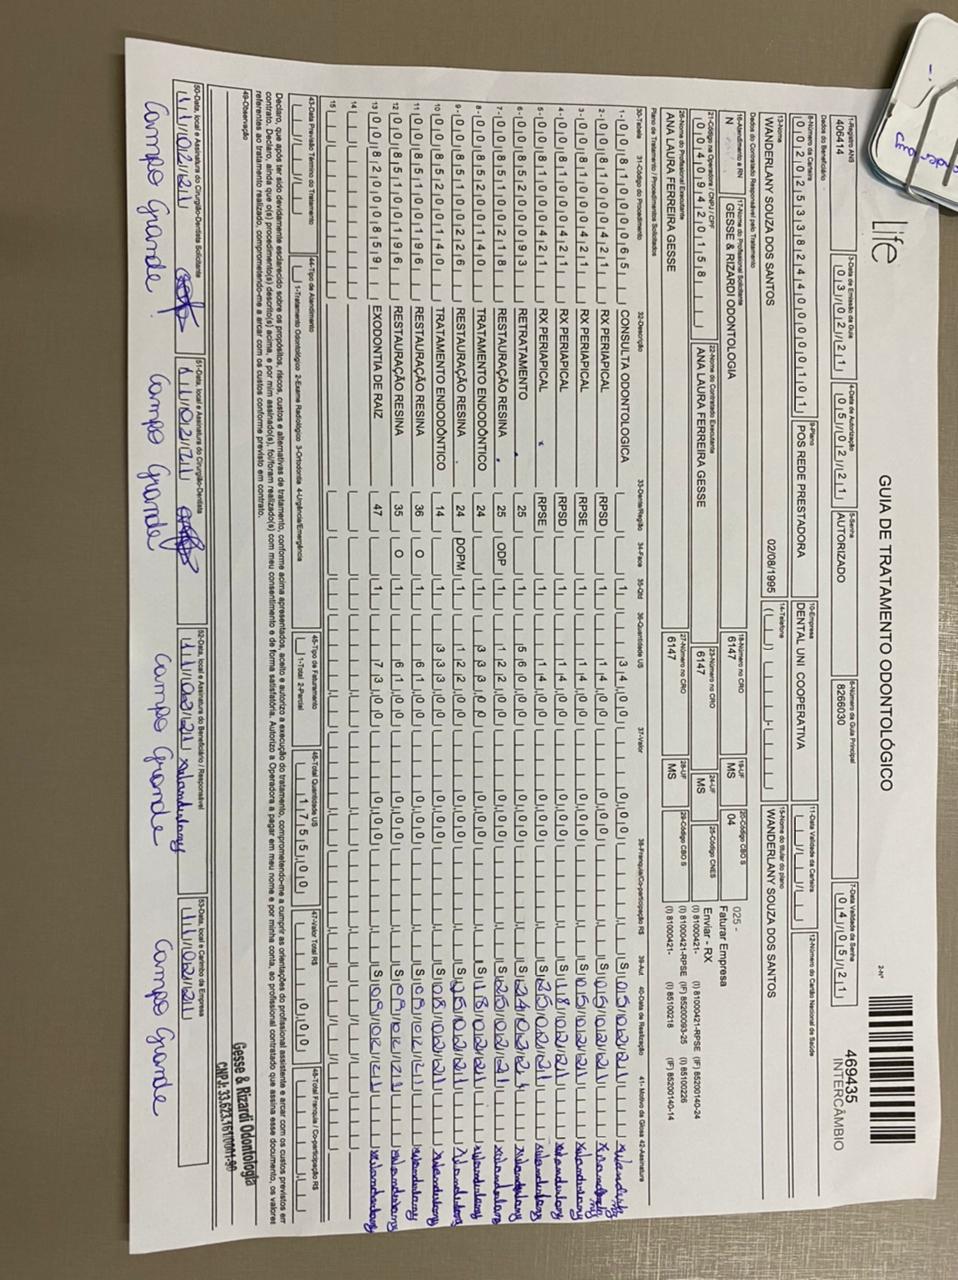 Life
GUIA DE TRATAMENTO ODONTOLÓGICO
2-Nº
469435
INTERCÂMBIO
1-Registro ANS
406414
3-Data de Emissão da Guia
03/02/21
4-Data de Autorização
05/02/21
5-Senha
AUTORIZADO
6-Número da Guia Principal
8266030
7-Data Validade da Senha
04/05/21
Dados do Beneficiário
8-Número da Carteira
00202533824400000101
9-Plano
POS REDE PRESTADORA
10-Empresa
DENTAL UNI COOPERATIVA
11-Data Validade da Carteira
12-Número do Cartão Nacional de Saúde
13-Nome
WANDERLANY SOUZA DOS SANTOS
02/08/1995
14-Telefone
15-Nome do titular do plano
WANDERLANY SOUZA DOS SANTOS
Dados do Contratado Responsável pelo Tratamento
16-Atendimento a RN
N
17-Nome do Profissional Solicitante
GESSE & RIZARDI ODONTOLOGIA
18-Número no CRO
6147
19-UF
MS
20-Código CBO S
04
025 -
Faturar Empresa
21-Código na Operadora / CNPJ / CPF
00409420158
22-Nome do Contratado Executante
ANA LAURA FERREIRA GESSE
23-Número no CRO
6147
24-UF
MS
25-Código CNES
Enviar - RX
26-Nome do Profissional Executante
ANA LAURA FERREIRA GESSE
27-Número no CRO
6147
28-UF
MS
29-Código CBO S
(I) 81000421- (I) 81000421-RPSE (IF) 85200140-24
(I) 81000421-RPSE (IF) 85200093-25 (I) 85100226
(I) 81000421- (I) 85100218 (IF) 85200140-14
Plano de Tratamento / Procedimentos Solicitados
30-Tabela 31-Código do Procedimento 32-Descrição 33-Dente/Região 34-Face 35-Qtd 36-Quantidade US 37-Valor 38-Franquia/Co-participação R$ 39-Aut 40-Data de Realização 41- Motivo da Glosa 42-Assinatura
1- 00 81000065 CONSULTA ODONTOLOGICA 1 34,00 0,00 S 05/02/21
2- 00 81000421 RX PERIAPICAL RPSD 1 14,00 0,00 S 05/02/21
3- 00 81000421 RX PERIAPICAL RPSE 1 14,00 0,00 S 05/02/21
4- 00 81000421 RX PERIAPICAL RPSD 1 14,00 0,00 S 18/02/21
5- 00 81000421 RX PERIAPICAL RPSE 1 14,00 0,00 S 25/02/21
6- 00 85200093 RETRATAMENTO 25 1 560,00 0,00 S 24/02/21
7- 00 85100218 RESTAURAÇÃO RESINA 25 ODP 1 122,00 0,00 S 25/02/21
8- 00 85200140 TRATAMENTO ENDODÔNTICO 24 1 333,00 0,00 S 18/02/21
9- 00 85100226 RESTAURAÇÃO RESINA 24 DOPM 1 122,00 0,00 S 25/02/21
10 00 85200140 TRATAMENTO ENDODÔNTICO 14 1 333,00 0,00 S 08/02/21
11 00 85100196 RESTAURAÇÃO RESINA 36 O 1 61,00 0,00 S 09/02/21
12 00 85100196 RESTAURAÇÃO RESINA 35 O 1 61,00 0,00 S 09/02/21
13 00 82000859 EXODONTIA DE RAIZ 47 1 73,00 0,00 S 09/02/21
14
15
43-Data Previsão Término do Tratamento
44-Tipo de Atendimento
1-Tratamento Odontológico 2-Exame Radiológico 3-Ortodontia 4-Urgência/Emergência
45-Tipo de Faturamento
1-Total 2-Parcial
46-Total Quantidade US
1755,00
47-Valor Total R$
0,00
48-Total Franquia / Co-participação R$
Declaro, que após ter sido devidamente esclarecido sobre os propósitos, riscos, custos e alternativas de tratamento, conforme acima apresentados, aceito e autorizo a execução do tratamento, comprometendo-me a cumprir as orientações do profissional assistente e arcar com os custos previstos em
contrato. Declaro, ainda que o(s) procedimento(s) descrito(s) acima, e por mim assinado(s), foi/foram realizado(s) com meu consentimento e de forma satisfatória. Autorizo a Operadora a pagar em meu nome e por minha conta, ao profissional contratado que assina esse documento, os valores
referentes ao tratamento realizado, comprometendo-me a arcar com os custos conforme previsto em contrato.
49-Observação
Gesse & Rizardi Odontologia
CNPJ: 33.623.161/0001-90
50-Data, local e Assinatura do Cirurgião-Dentista Solicitante
11/02/21
51-Data, local e Assinatura do Cirurgião-Dentista
11/02/21
52-Data, local e Assinatura do Beneficiário / Responsável
11/02/21
53-Data, local e Carimbo da Empresa
11/02/21
Campo Grande
Campo Grande
Campo Grande
Campo Grande